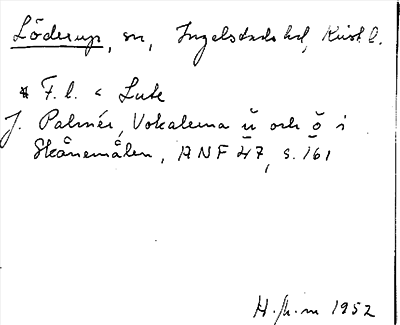 Löderup, sn, Ingelstads hd, Krist l.
* F. l. < Lute
J. Palmér, Vokalerna ŭ och ŏ i
Skånemålen, ANF 47, s. 161
H. 1952